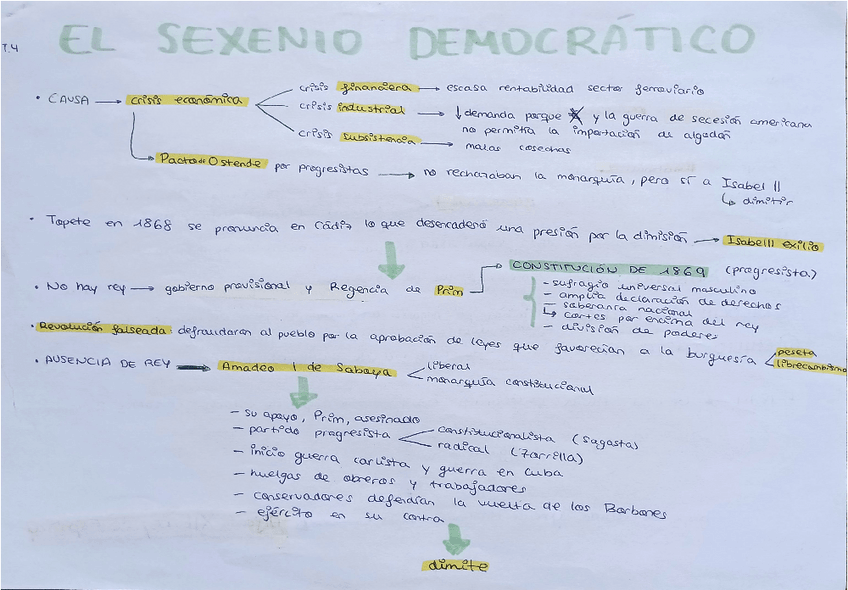 T.4
EL SEXENIO DEMOCRÁTICO
• CAUSA → crisis económica
crisis financiera → escasa rentabilidad sector ferroviario
crisis industrial → ↓ demanda porque y la guerra de secesión americana
no permitía la importación de algodón
crisis subsistencia → malas cosechas
Pacto de Ostende por progresistas → no rechazaban la monarquía, pero sí a Isabel II
↳ dimitir
• Topete en 1868 se pronuncia en Cádiz lo que desencadenó una presión por la dimisión → Isabel II exilio
• No hay rey → gobierno provisional y Regencia de Prim
CONSTITUCIÓN DE 1869 (progresista)
- sufragio universal masculino
- amplia declaración de derechos
- soberanía nacional
↳ cortes por encima del rey
- división de poderes
• Revolución falseada: defraudaron al pueblo por la aprobación de leyes que favorecían a la burguesía
peseta
librecambismo
• AUSENCIA DE REY → Amadeo I de Saboya
liberal
monarquía constitucional
- su apoyo, Prim, asesinado
- partido progresista
constitucionalista (Sagasta)
radical (Zorrilla)
- inicio guerra carlista y guerra en Cuba
- huelgas de obreros y trabajadores
- conservadores defendían la vuelta de los Borbones
- ejército en su contra
dimite